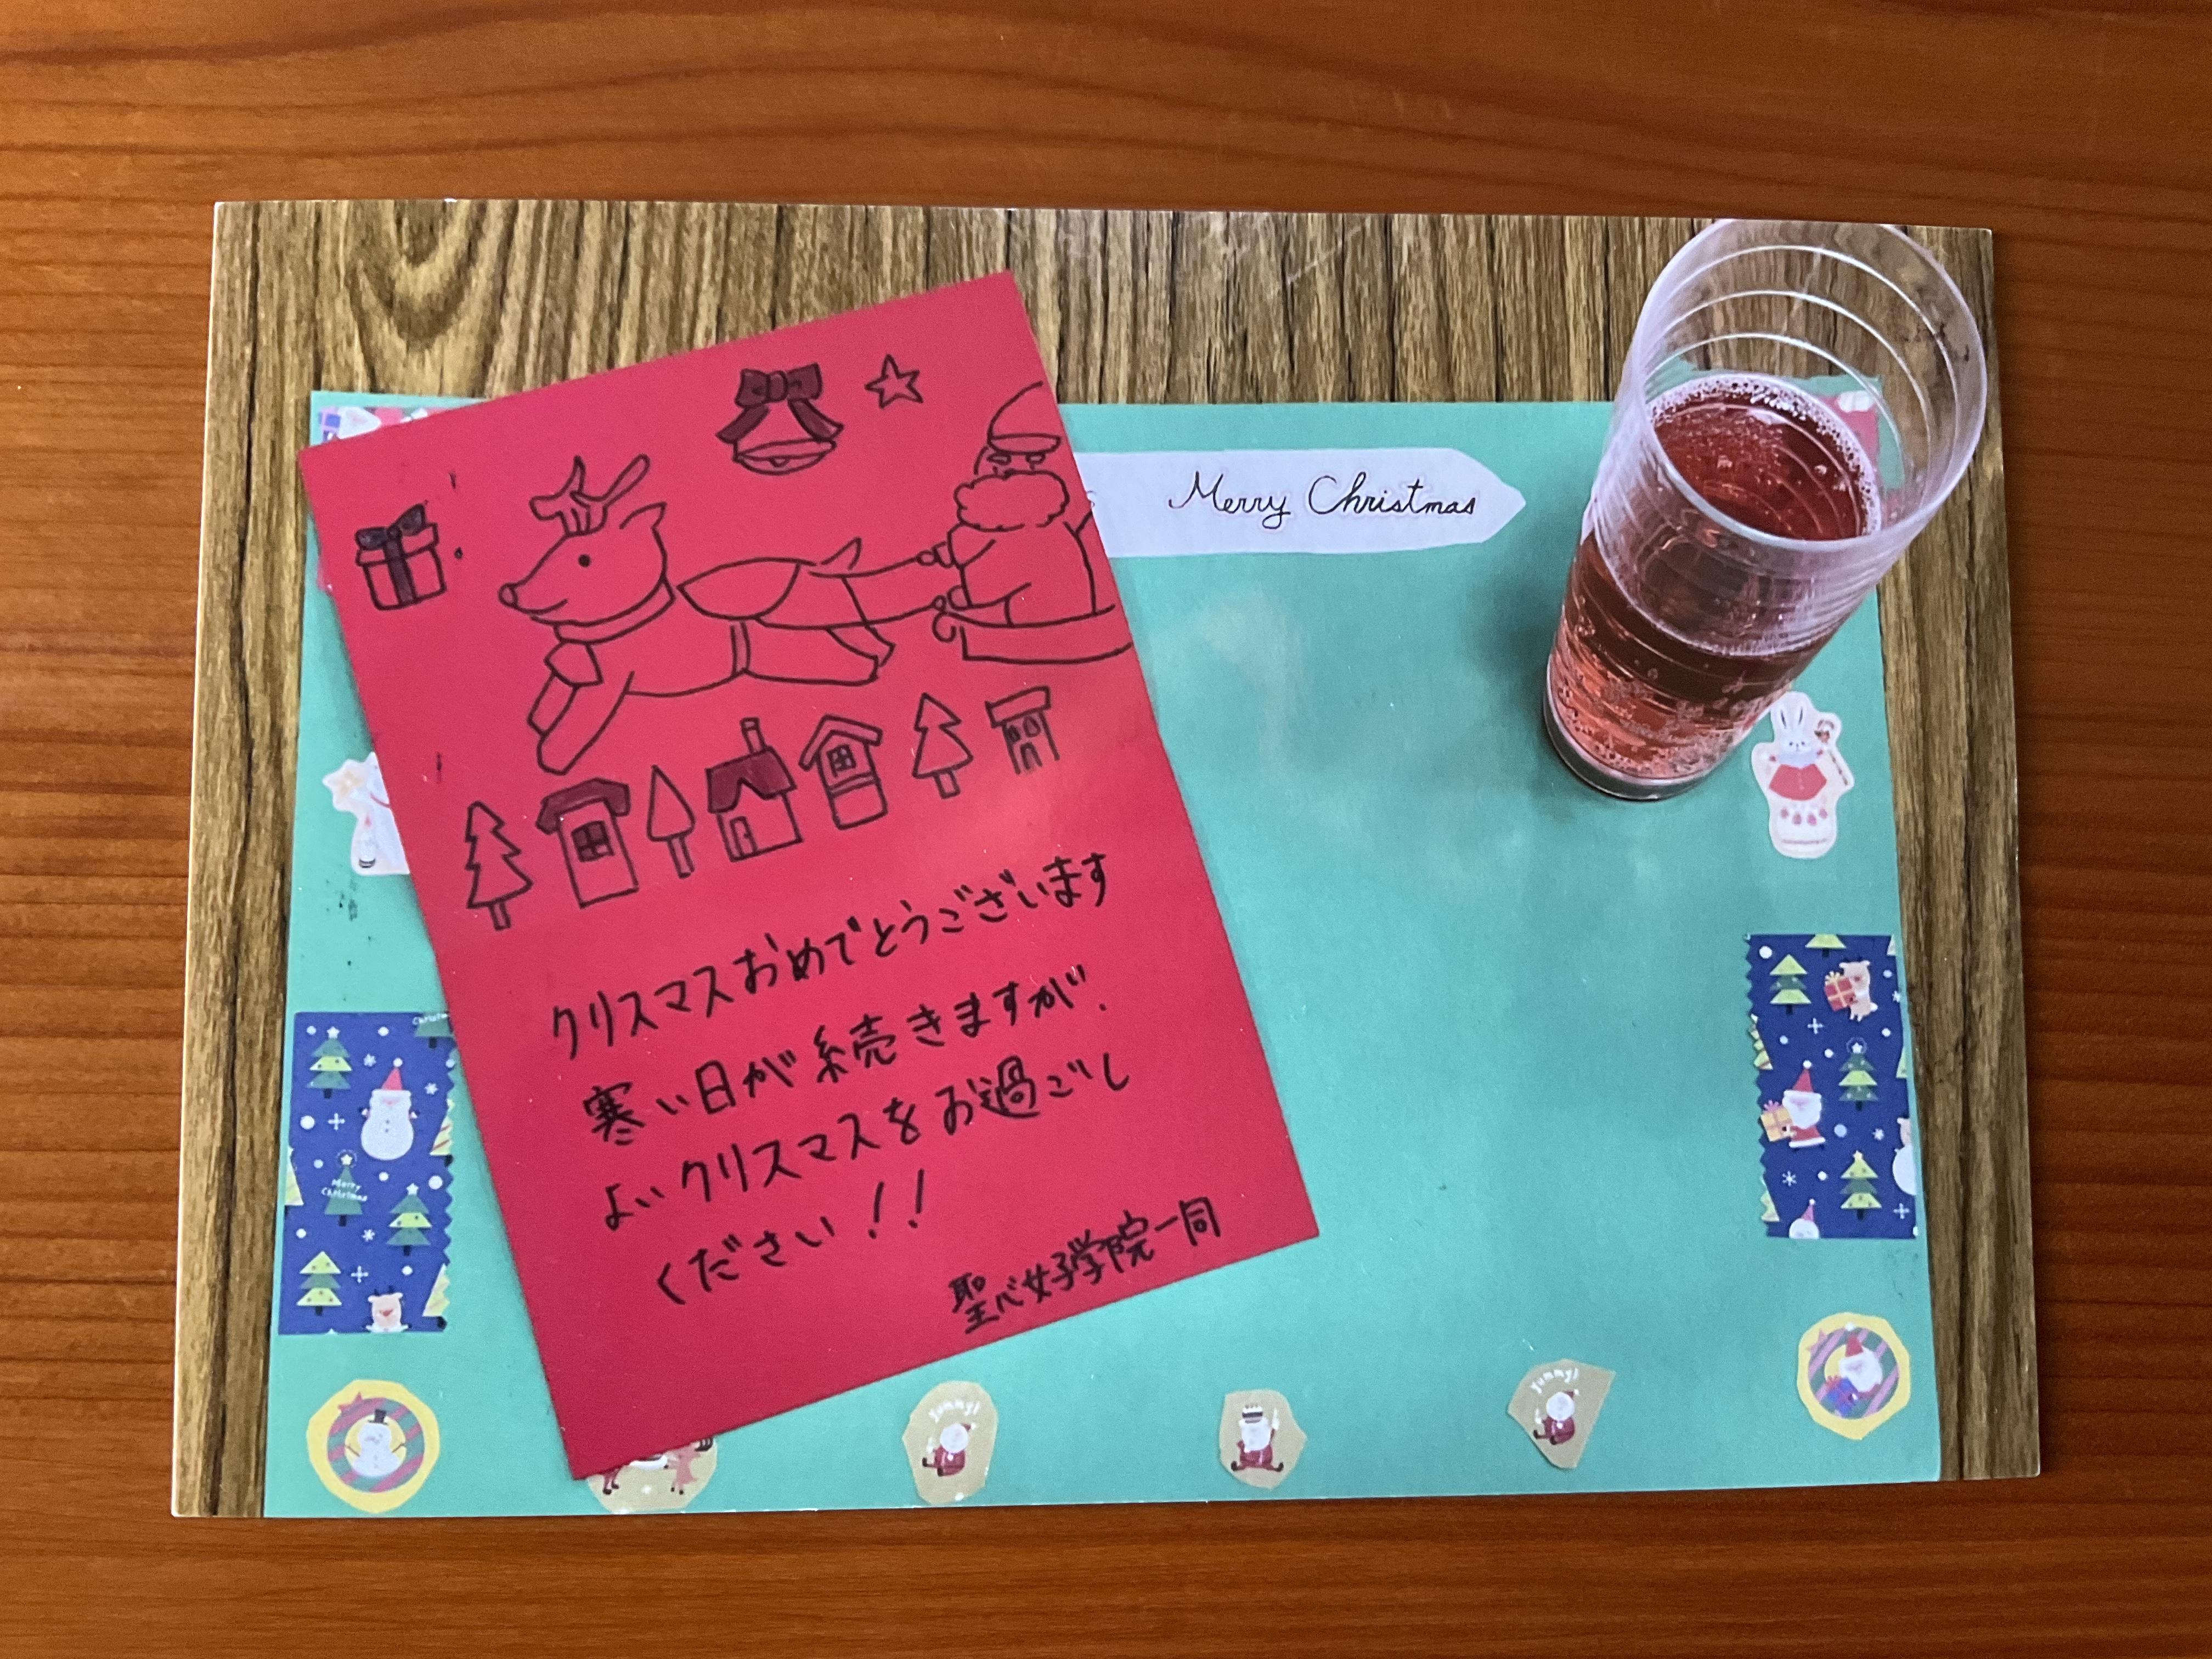 Merry Christmas
クリスマスおめでとうございます
寒い日が続きますが、
よいクリスマスをお過ごし
ください!!
聖心女子学院一同
Christmas
Merry
Christmas
yummy!
yummy!